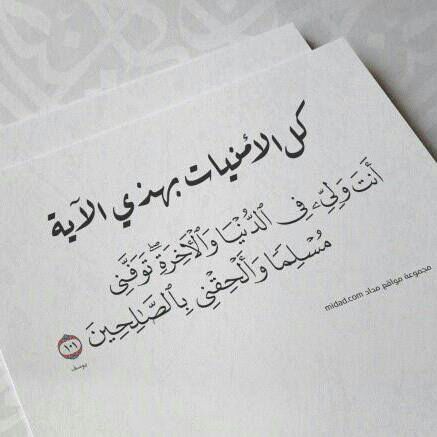 كل الأمنيات بهذي الآية
أَنتَ وَلِيِّۦ فِى ٱلدُّنْيَا وَٱلْأَخِرَةِ ۖ تَوَفَّنِى
مُسْلِمًا وَأَلْحِقْنِى بِٱلصَّٰلِحِينَ ١٠١
يوسف
مجموعة مواقع مداد midad.com